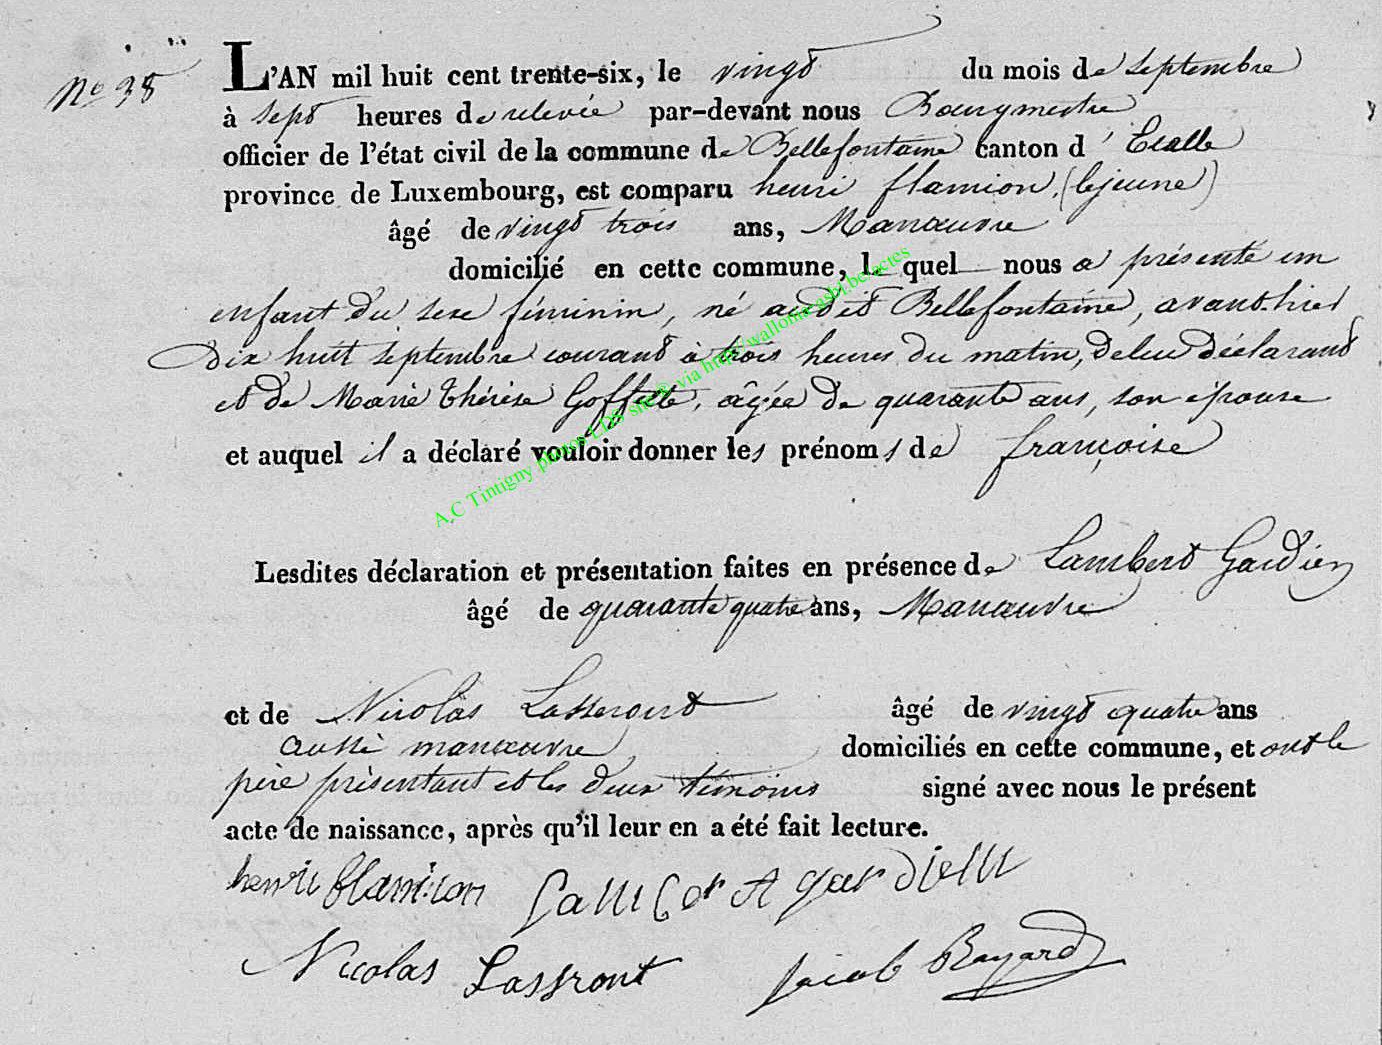 N° 38
L'AN mil huit cent trente-six, le vingt du mois de septembre
à sept heures de relevée par-devant nous Bourgmestre
officier de l'état civil de la commune de Bellefontaine canton d'Etalle
province de Luxembourg, est comparu henri flamion, (lejeune)
âgé de vingt trois ans, Manœuvre
domicilié en cette commune, lequel nous a présenté un
enfant du sexe féminin, né audit Bellefontaine, avant hier
dix huit septembre courant à trois heures du matin, de lui déclarant
et de Marie Thérèse Goffette, âgée de quarante ans, son épouse
et auquel il a déclaré vouloir donner les prénoms de françoise
Lesdites déclaration et présentation faites en présence de Lambert Gardien
âgé de quarante quatre ans, Manœuvre
et de Nicolas Lassront âgé de vingt quatre ans
aussi manœuvre domiciliés en cette commune, et ont le
père présentant et les deux témoins signé avec nous le présent
acte de naissance, après qu'il leur en a été fait lecture.
henri flamion
Nicolas Lassront Jacob
A.C Tintigny photos LDS site© via http://wallonia-asbl.be/actes